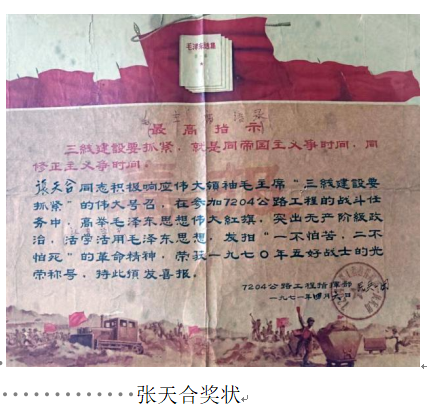 毛泽东选集
最高指示
三线建设要抓紧，就是同帝国主义争时间，同
修正主义争时间。
张天合同志积极响应伟大领袖毛主席“三线建设要
抓紧”的伟大号召，在参加7204公路工程的战斗任
务中，高举毛泽东思想伟大红旗，突出无产阶级政
治，活学活用毛泽东思想，发扬“一不怕苦，二不
怕死”的革命精神，荣获一九七〇年五好战士的光
荣称号，特此颁发喜报。
7204公路工程指挥部
一九七一年四月 日
张天合奖状